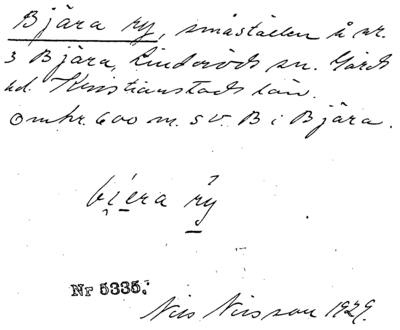 Bjära ry, småställen å nr.
3 Bjära, Linderöds sn. Gärds
hd. Kristianstads län.
Omkr. 600 m. SV. B i Bjära.
bi̯era ry
Nr 5335.
Nils Nilsson 1929.